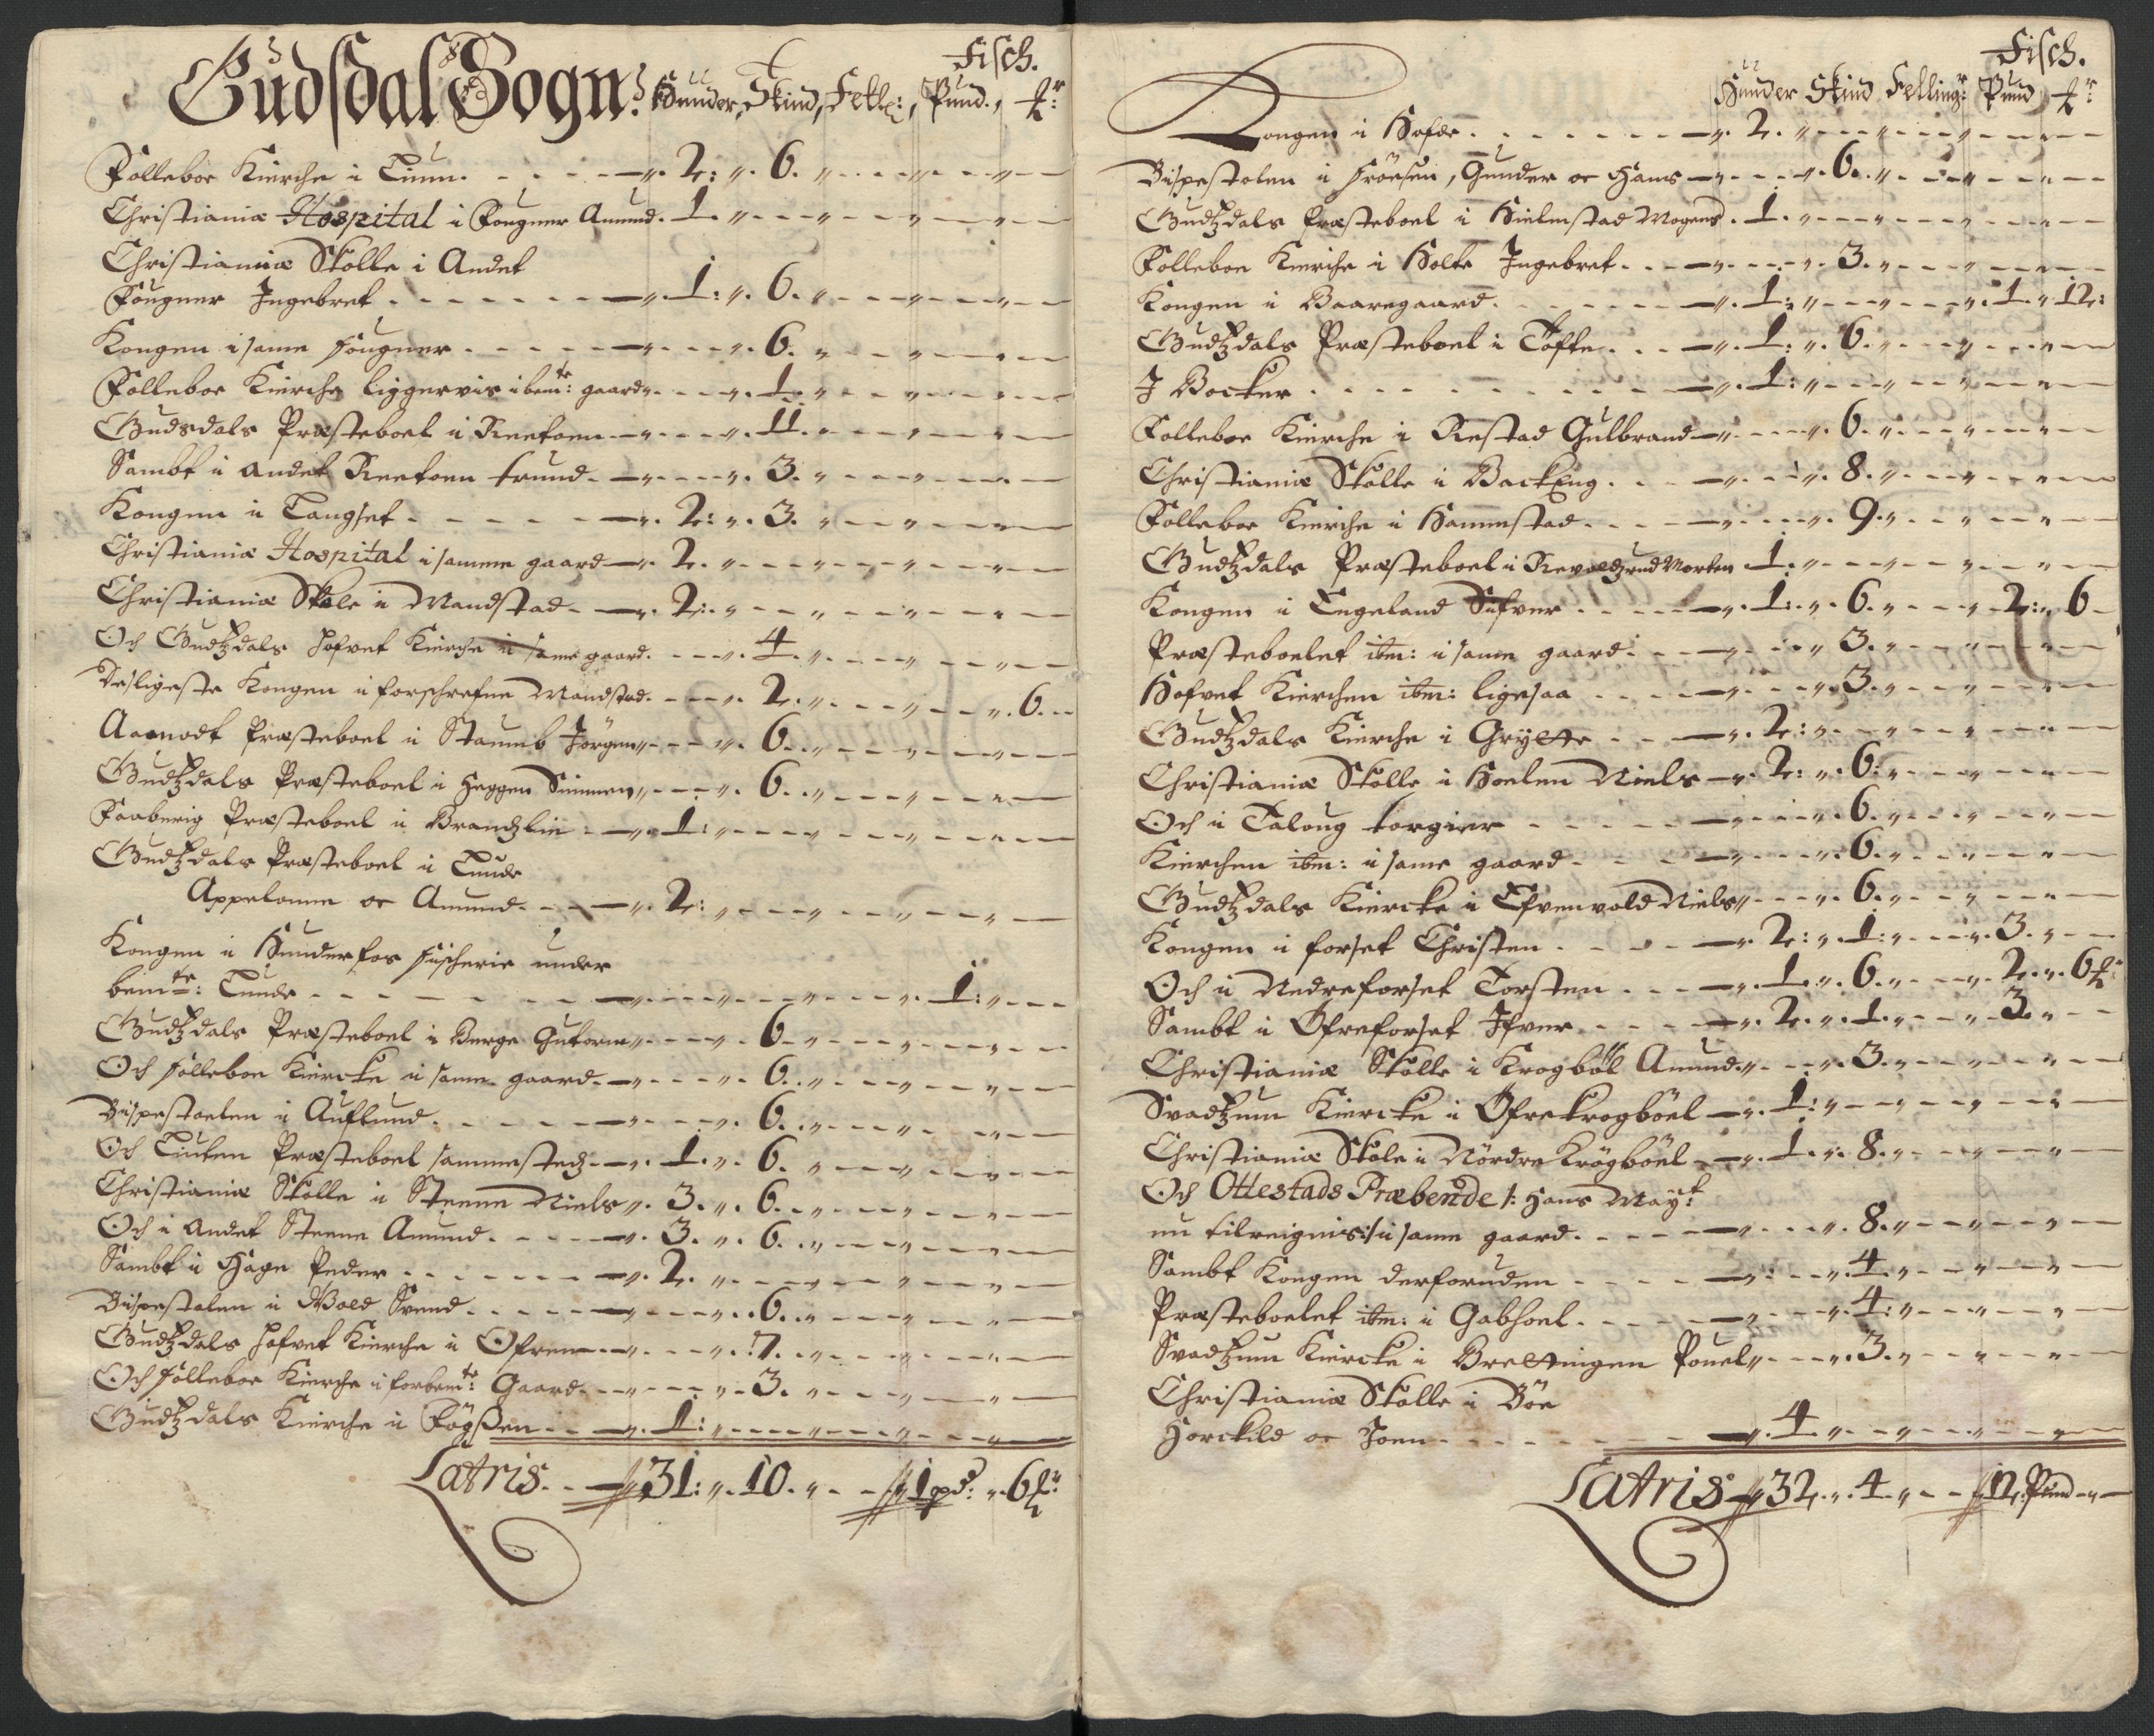 Fisch.
Gudsdal Sogn: Hunder, Skind, Fell:, Pund.,
Folleboe Kierche i Tiuen. 2: 6.
Christianiæ Hospital i Fougner Amund. 1.
Christianiæ Skolle i Andet
Fougner Ingebret 1: 6.
Kongen i same Fougner 6.
Folleboe Kierche liggervis i bemte: gaard 1.
Gudsdals Præsteboel i Reetoen 11.
Sambt i andet Reetoen trund 3.
Kongen i Tangset 2: 3.
Christianiæ Hospital i samme gaard 2.
Christianiæ Skole i Mandstad 2:
Och Gudtzdals Hofvet Kierche i same gaard. 4.
Desligeste Kongen i forschrefne Mandstad. 2. 6.
Præsteboel i Staumb Jörgen 6.
Gudtzdals Præsteboel i Heggen Simmen 6.
Faaberig Præsteboel i Brandzlie 1:
Gudtzdals Præsteboel i Tunde
Appelonne oc Amund. 2:
Kongen i Hunderfos fischerie under
bemte: Tunde 1:
Gudtzdals Præsteboel i Berge Gutorm 6.
Och Folleboe Kiercke i same gaard. 6.
Bispestoelen i Auflund. 6.
Och Præsteboel sammestedz 1. 6.
Christianiæ Skolle i Steene Niels 3. 6.
Och i andet Steene Amund. 3. 6.
Sambt i Hage Peder 2.
Bispestolen i Vold Svend. 6.
Gudtzdals Hofvet Kierche i Ofren 7.
Och Folleboe Kierche i forbemte: Gaard. 3.
Gudtzdals Kierche i Fögßen 1:
Latris. 31: 10. 1 pd: 6
Fisch.
Hunder Skind Felling: Pund
Kongen i Hofde 2.
Bispestolen i Fröesen, Gunder oc Hans 6.
Gudtzdals Præsteboel i Hielmstad Mogens. 1.
Folleboe Kierche i Holte Ingebret. 3.
Kongen i Baaregaard. 1: 1. 12:
Gudtzdals Præsteboel i Tofte 1: 6.
I Bocker 1:
Folleboe Kierche i Restad Gulbrand 6.
Christianiæ Skolle i BackEng. 8.
Folleboe Kierche i Hammestad 9.
Gudtzdals Præsteboel i Revoldzrud Morten 1.
Kongen i Engeland Sifver 1: 6. 2: 6
Præsteboelet ibm: i same gaard: 3.
Hofvet Kierchen ibm: ligesaa 3.
Gudtzdals Kierche i Grytte 2:
Christianiæ Skolle i Hoelen Niels 2: 6:
Och i Taloug torgier 6.
Kierchen ibm: i same gaard. 6.
Gudtzdals Kiercke i Efvenvold Niels 6.
Kongen i forset Christen 2: 1: 3.
Och i Nedreforset Torsten 1. 6. 2. 6
Sambt i Öfreforset Ifver 2. 1. 3.
Christianiæ Skolle i Krogböl Amund 3.
Svadtzum Kiercke i Öfrekrogböel 1:
Christianiæ Skole i Nördre Krögböel 1. 8.
Och Ottestads Præbende /: Hans Mayt:
nu tilreignis :/ i same gaard. 8.
Sambt Kongen derforuden 4.
Præsteboelet ibm: i Gabhoel. 4:
Svadtzum Kiercke i Brettingen Pouel 3.
Christianiæ Skolle i Böe
Horckild oc Joen 4.
Latris 32. 4. 12. Pund